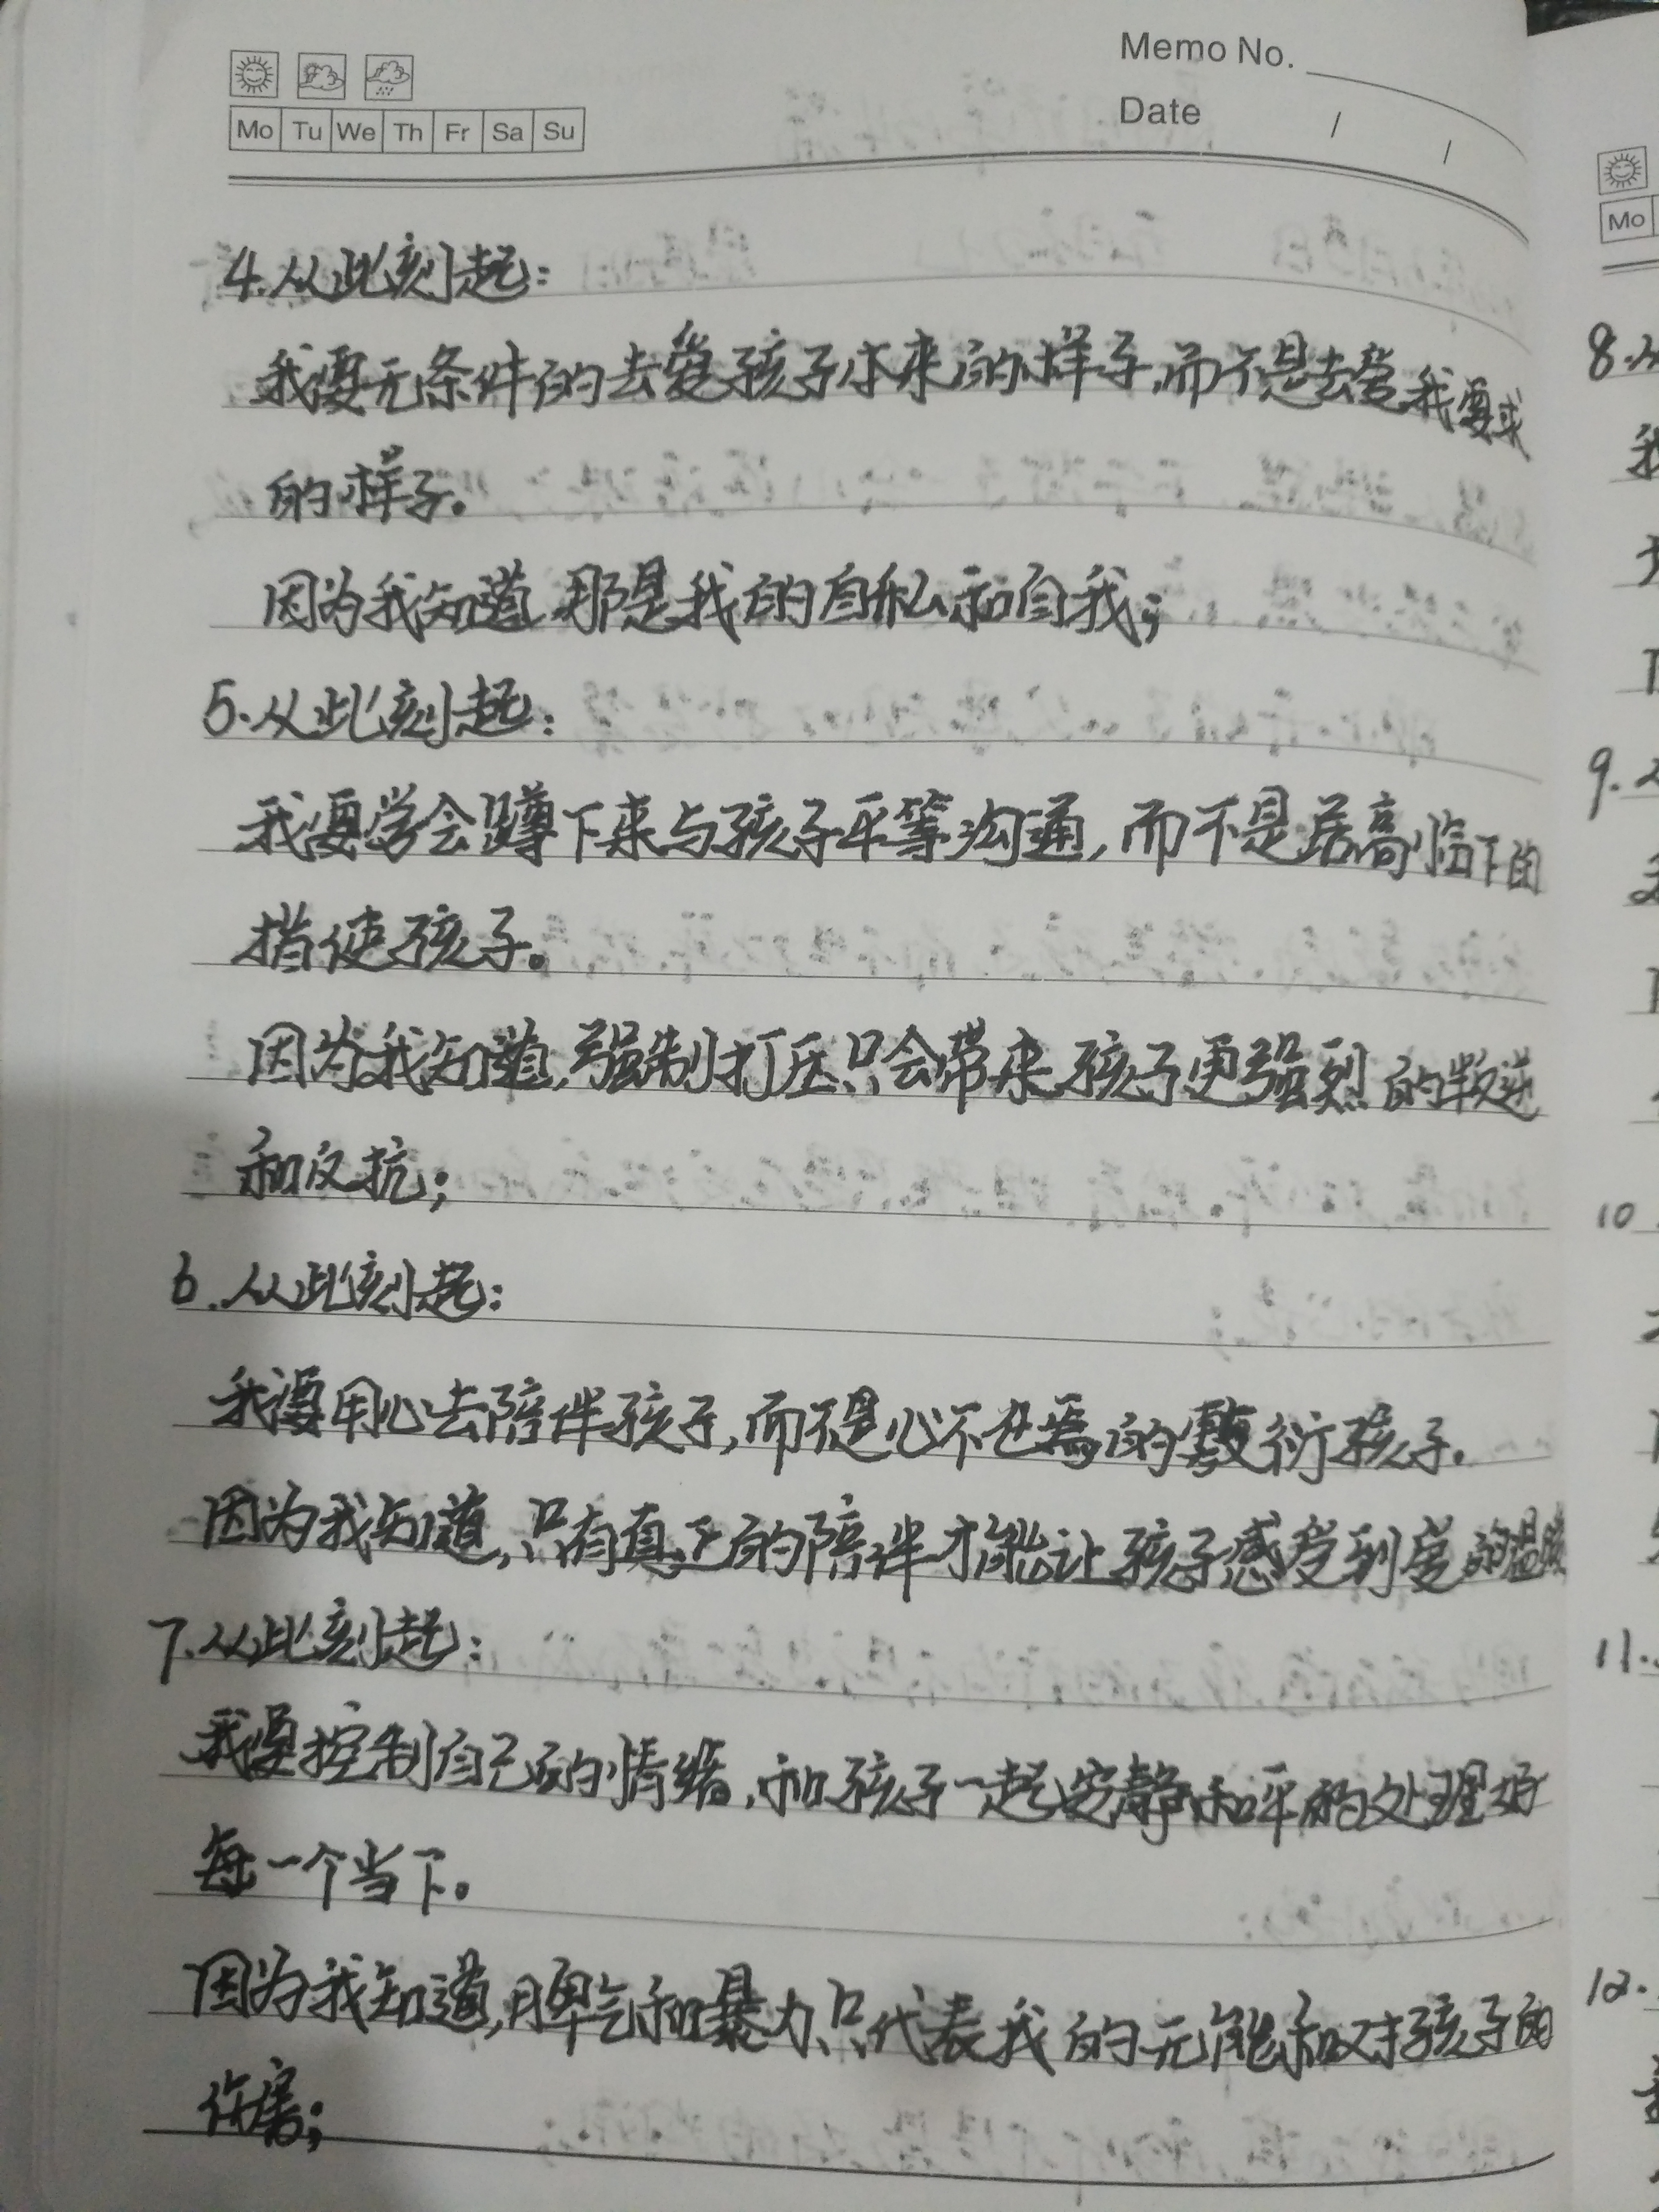 Memo No.
Mo Tu We Th Fr Sa Su
Date / /
4.从此刻起:
我要无条件的去爱孩子本来的样子,而不是去爱我要求
的样子。
因为我知道,那是我的自私和自我;
5.从此刻起:
我要学会蹲下来与孩子平等沟通,而不是居高临下的
指使孩子。
因为我知道,强制打压只会带来孩子更强烈的叛逆
和反抗;
6.从此刻起:
我要用心去陪伴孩子,而不是心不在焉的敷衍孩子.
因为我知道,只有真正的陪伴才能让孩子感受到爱的温暖
7.从此刻起:
我要控制自己的情绪,和孩子一起安静和平的处理好
每一个当下。
因为我知道,脾气和暴力只代表我的无能和对孩子的
伤害;
Mo
8.从
我
9.
10.
11.
12.